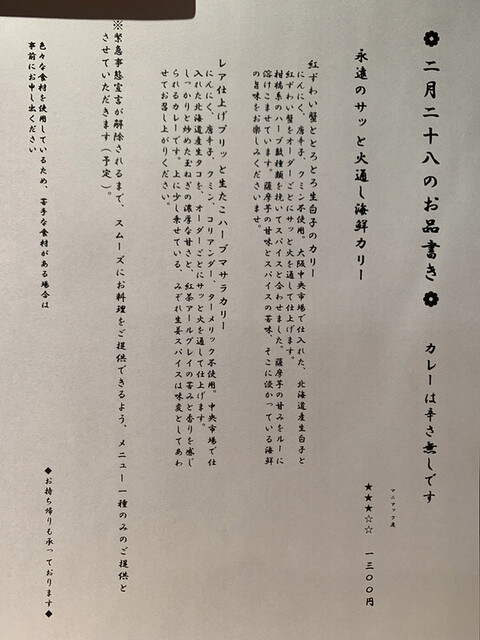 ❁ 二月二十八のお品書き ❁ カレーは辛さ無しです
マニアック度
永遠のサッと火通し海鮮カリー ★★★☆☆ 一三〇〇円
紅ずわい蟹ととろとろ生白子のカリー
にんにく、唐辛子、クミン不使用。大阪中央市場で仕入れた、北海道産生白子と
紅ずわい蟹をオーダーごとにサッと火を通して仕上げます。
柑橘系のハーブ数種類を挽いてスパイスと合わせました。薩摩芋の甘みをルーに
溶けこませています。薩摩芋の甘味とスパイスの苦味、そこに浸かっている海鮮
の旨味をお楽しみくださいませ。
レア仕上げプリッと生たこハーブマサラカリー
にんにく、唐辛子、クミン、コリアンダー、ターメリック不使用。中央市場で仕
入れた北海道産生タコを、オーダーごとにサッと火を通して仕上げます。
しっかりと炒めた玉ねぎの濃厚な甘さと、紅茶アールグレイの苦みと香りを感じ
られるカレーです。上に少し乗せている、みぞれ生姜スパイスは味変としてあわ
せてお召し上がりください。
※緊急事態宣言が解除されるまで、スムーズにお料理をご提供できるよう、メニュー一種のみのご提供と
させていただきます(予定)。
色々な食材を使用しているため、苦手な食材がある場合は
事前にお申し出ください
◆お持ち帰りも承っております◆